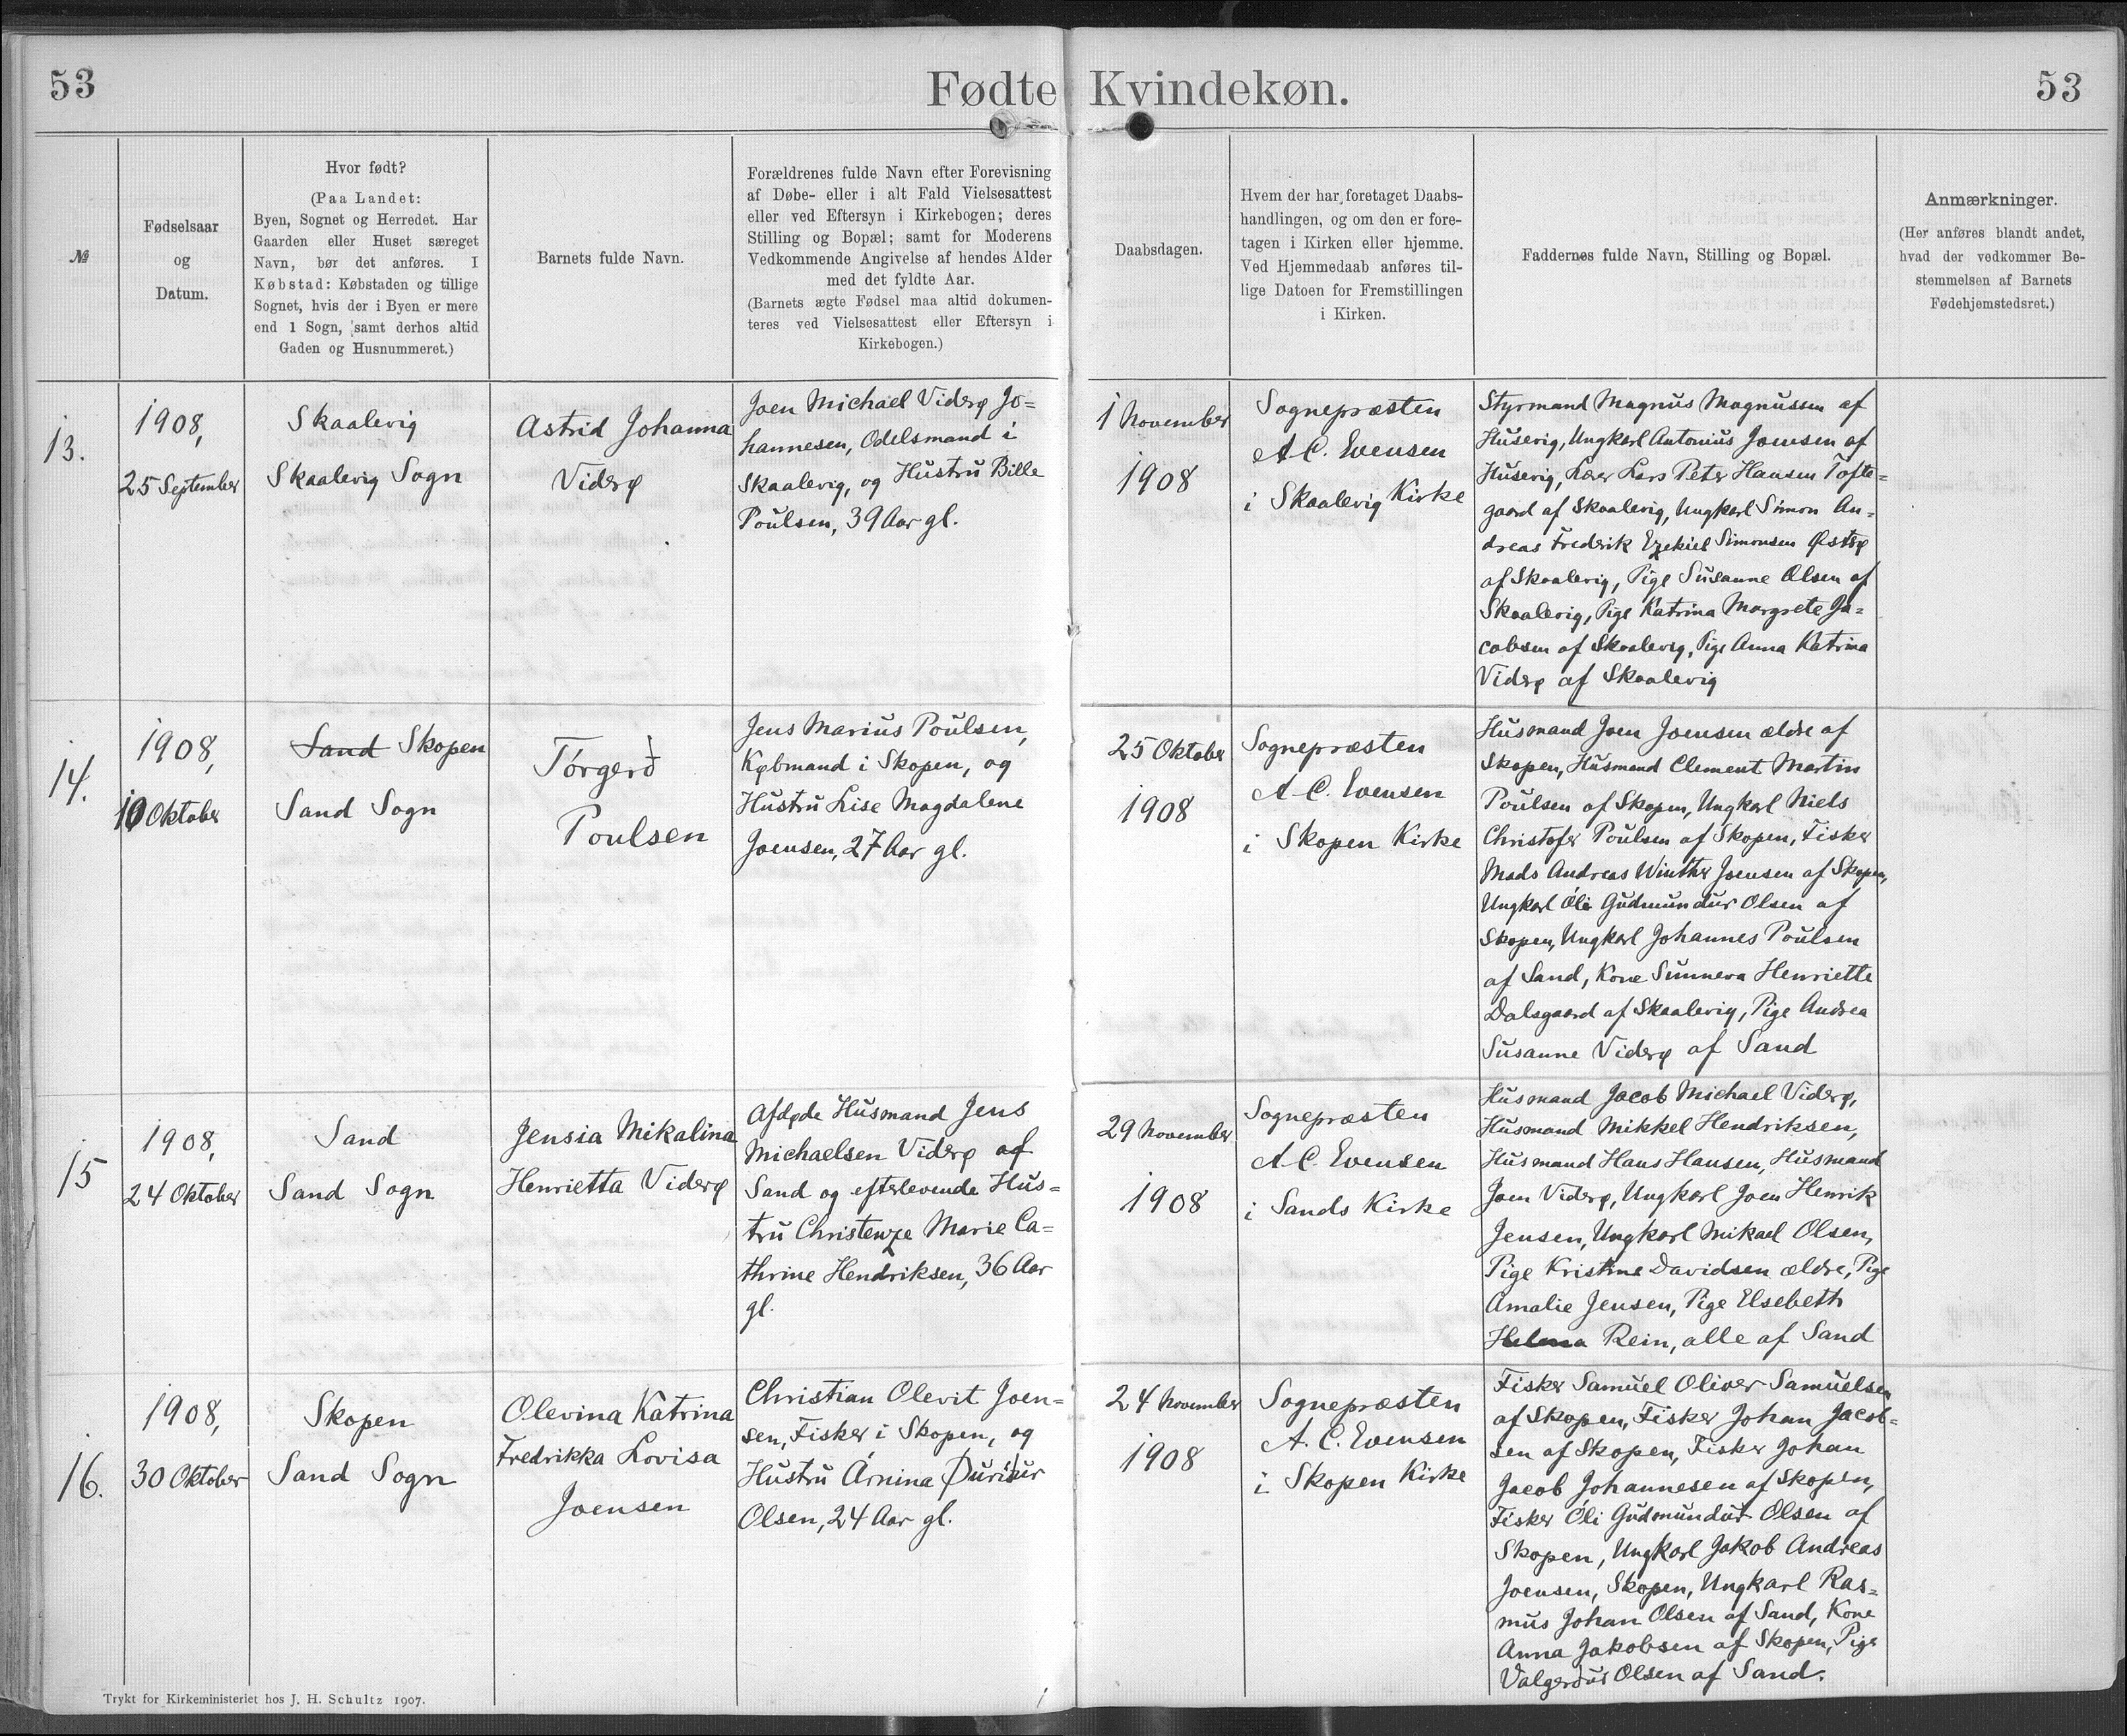 53
Fødte Kvindekøn.
53
№
Fødselsaar
og
Datum.
Hvor født?
(Paa Landet:
Byen, Sognet og Herredet. Har
Gaarden eller Huset særeget
Navn, bør det anføres. I
Købstad: Købstaden og tillige
Sognet, hvis der i Byen er mere
end 1 Sogn, samt derhos altid
Gaden og Husnummeret.)
Barnets fulde Navn.
Forældrenes fulde Navn efter Forevisning
af Døbe- eller i alt Fald Vielsesattest
eller ved Eftersyn i Kirkebogen; deres
Stilling og Bopæl; samt for Moderens
Vedkommende Angivelse af hendes Alder
med det fyldte Aar.
(Barnets ægte Fødsel maa altid dokumen-
teres ved Vielsesattest eller Eftersyn i
Kirkebogen.)
Daabsdagen.
Hvem der har foretaget Daabs-
handlingen, og om den er fore-
tagen i Kirken eller hjemme.
Ved Hjemmedaab anføres til-
lige Datoen for Fremstillingen
i Kirken.
Faddernes fulde Navn, Stilling og Bopæl.
Anmærkninger.
(Her anføres blandt andet,
hvad der vedkommer Be-
stemmelsen af Barnets
Fødehjemstedsret.)
13.
1908,
25 September
Skaalevig
Skaalevig Sogn
Astrid Johanna
Viderø
Joen Michael Viderø Jo=
hannesen, Odelsmand i
Skaalevig, og Hustru Bille
Poulsen, 39 Aar gl.
1 November
1908
Sognepræsten
A.C. Evensen
i Skaalevig Kirke
Styrmand Magnus Magnussen af
Husevig, Ungkarl Antonius Joensen af
Husevig, Lærer Lars Peter Hansen Tofte=
gaard af Skaalevig, Ungkarl Simon An=
dreas Frederik Ezekiel Simonsen Østrø
af Skaalevig, Pige Susanne Olsen af
Skaalevig, Pige Katrina Margrete Ja=
cobsen af Skaalevig, Pige Anna Katrina
Viderø af Skaalevig
14.
1908,
10 Oktober
Sand Skopen
Sand Sogn
Tórgerð
Poulsen
Jens Marius Poulsen,
Købmand i Skopen, og
Hustru Lise Magdalene
Joensen, 27 Aar gl.
25 Oktober
1908
Sognepræsten
A.C. Evensen
i Skopen Kirke
Husmand Joen Joensen ældre af
Skopen, Husmand Clement Martin
Poulsen af Skopen, Ungkarl Niels
Christofer Poulsen af Skopen, Fisker
Mads Andreas Winther Joensen af Skopen,
Ungkarl Óli Gudmundur Olsen af
Skopen, Ungkarl Johannes Poulsen
af Sand, Kone Sunneva Henriette
Dalsgaard af Skaalevig, Pige Andrea
Susanne Viderø af Sand
15
1908,
24 Oktober
Sand
Sand Sogn
Jensia Mikalina
Henrietta Viderø
Afdøde Husmand Jens
Michaelsen Viderø af
Sand og efterlevende Hus=
tru Christenze Marie Ca=
thrine Hendriksen, 36 Aar
gl.
29 November
1908
Sognepræsten
A.C. Evensen
i Sands Kirke
Husmand Jacob Michael Viderø,
Husmand Mikkel Hendriksen,
Husmand Hans Hansen, Husmand
Joen Viderø, Ungkarl Joen Henrik
Jensen, Ungkarl Mikael Olsen,
Pige Kristine Davidsen ældre, Pige
Amalie Jensen, Pige Elsebeth
Helena Rein, alle af Sand
16.
1908,
30 Oktober
Skopen
Sand Sogn
Olevina Katrina
Fredrikka Lovisa
Joensen
Christian Olevit Joen=
sen, Fisker i Skopen, og
Hustru Árnina Þuriður
Olsen, 24 Aar gl.
24 November
1908
Sognepræsten
A.C. Evensen
i Skopen Kirke
Fisker Samuel Oliver Samuelsen
af Skopen, Fisker Johan Jacob=
sen af Skopen, Fisker Johan
Jacob Johannesen af Skopen,
Fisker Óli Gudmundur Olsen af
Skopen, Ungkarl Jakob Andreas
Joensen, Skopen, Ungkarl Ras=
mus Johan Olsen af Sand, Kone
Anna Jakobsen af Skopen, Pige
Valgerður Olsen af Sand.
Trykt for Kirkeministeriet hos J. H. Schultz 1907.